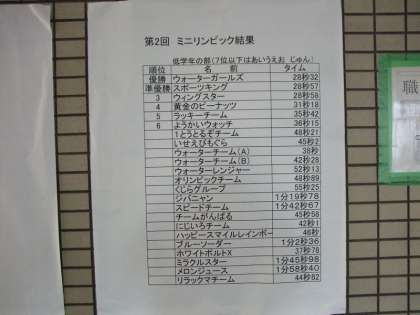 第2回 ミニリンピック結果
低学年の部(7位以下はあいうえお じゅん)
順位 名 前 タイム
優勝 ウォーターガールズ 28秒32
準優勝 スポーツキング 28秒57
3 ウィングスター 28秒58
4 黄金のピーナッツ 31秒18
5 ラッキーチーム 35秒42
6 ようかいウォッチ 36秒15
1とうとるぞチーム 48秒21
いせえびもぐら 45秒2
ウォーターチーム(A) 38秒
ウォーターチーム(B) 42秒28
ウォーターレンジャー 52秒13
オリンピックチーム 48秒89
くじらグループ 55秒25
ジバニャン 1分19秒78
スピードチーム 1分42秒67
チームがんばる 45秒58
にじいろチーム 42秒1
ハッピースマイルレインボー 46秒
ブルーソーダー 1分2秒36
ホワイトボルトX 37秒78
ミラクルスター 1分45秒98
メロンジュース 1分58秒40
リラックマチーム 44秒82
職